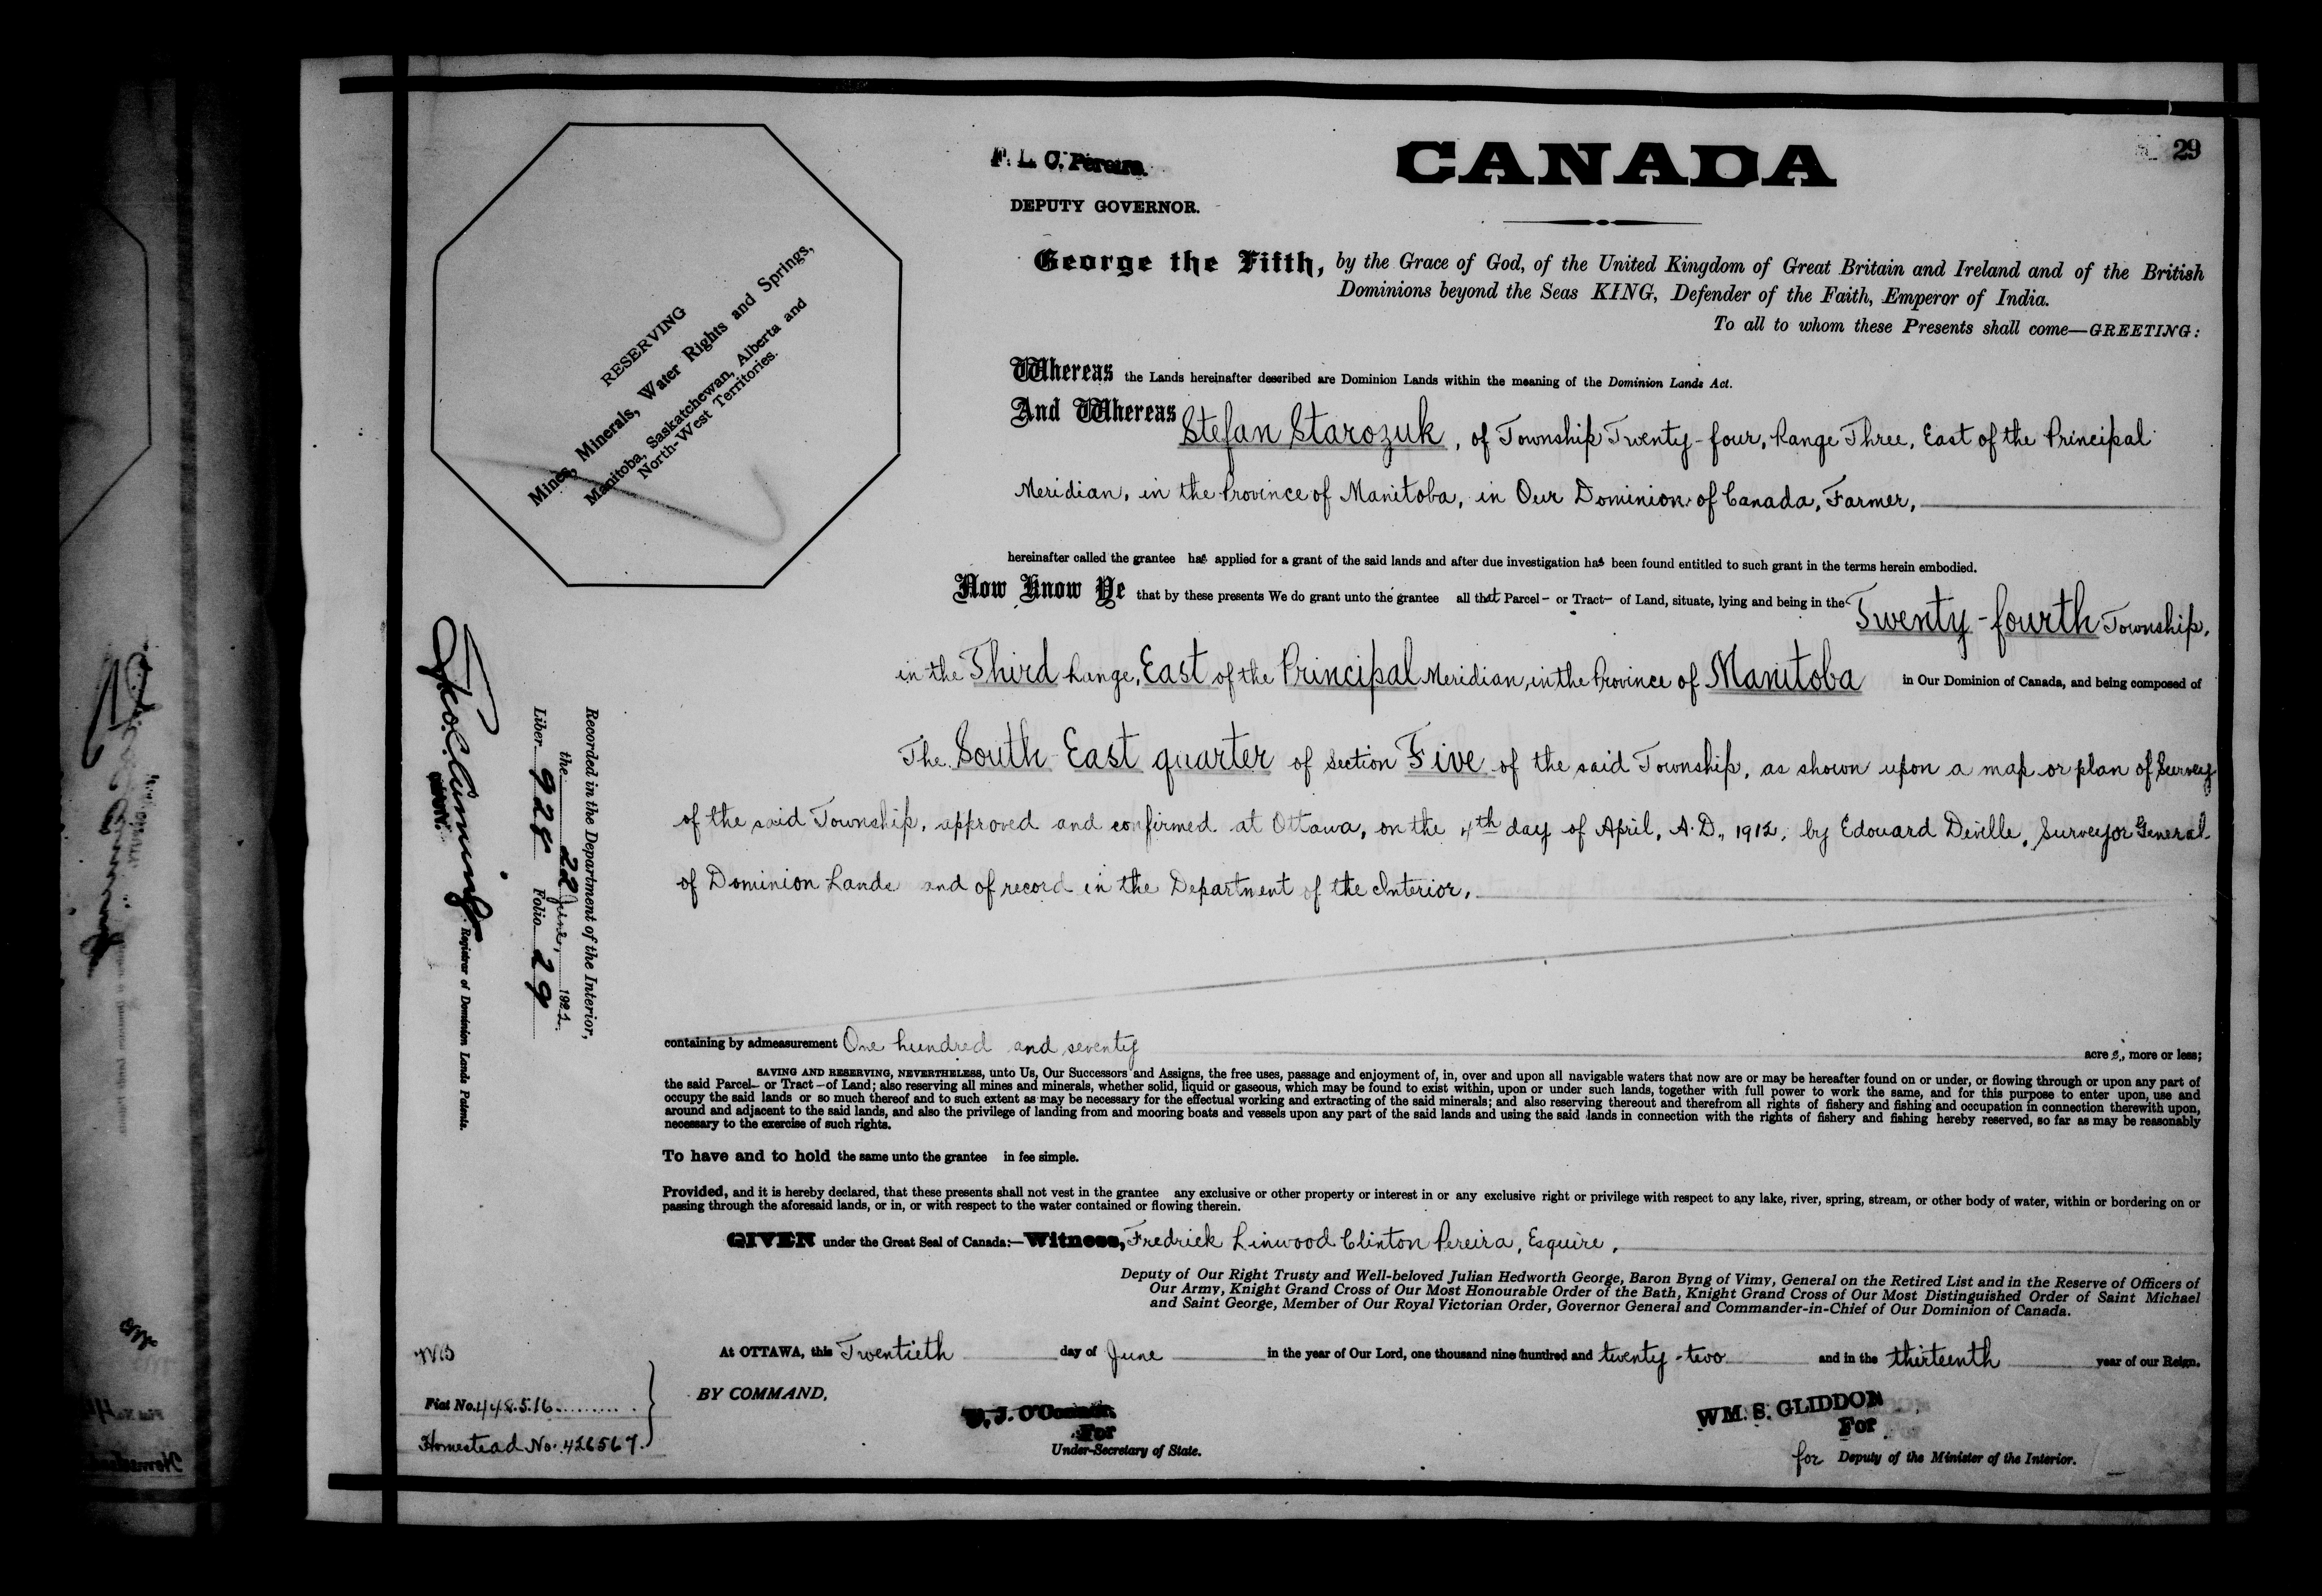 29
CANADA
F. L. C. Pereira.
DEPUTY GOVERNOR.
George the Fifth, by the Grace of God, of the United Kingdom of Great Britain and Ireland and of the British
Dominions beyond the Seas KING, Defender of the Faith, Emperor of India.
To all to whom these Presents shall come—GREETING:
RESERVING
Mines, Minerals, Water Rights and Springs,
Manitoba, Saskatchewan, Alberta and
North-West Territories.
Whereas the Lands hereinafter described are Dominion Lands within the meaning of the Dominion Lands Act.
And Whereas Stefan Starozuk, of Township Twenty-four, Range Three, East of the Principal
Meridian, in the Province of Manitoba, in Our Dominion of Canada, Farmer,
hereinafter called the grantee has applied for a grant of the said lands and after due investigation has been found entitled to such grant in the terms herein embodied.
Now Know Ye that by these presents We do grant unto the grantee all that Parcel or Tract of Land, situate, lying and being in the Twenty-fourth Township,
in the Third Range, East of the Principal Meridian, in the Province of Manitoba in Our Dominion of Canada, and being composed of
The South East quarter of section Five of the said Township, as shown upon a map or plan of Survey
of the said Township, approved and confirmed at Ottawa, on the 4th day of April, A.D., 1912, by Edouard Deville, Surveyor General
of Dominion Lands and of record in the Department of the Interior,
containing by admeasurement One hundred and seventy acres, more or less;
SAVING AND RESERVING, NEVERTHELESS, unto Us, Our Successors and Assigns, the free uses, passage and enjoyment of, in, over and upon all navigable waters that now are or may be hereafter found on or under, or flowing through or upon any part of
the said Parcel or Tract of Land; also reserving all mines and minerals, whether solid, liquid or gaseous, which may be found to exist within, upon or under such lands, together with full power to work the same, and for this purpose to enter upon, use and
occupy the said lands or so much thereof and to such extent as may be necessary for the effectual working and extracting of the said minerals; and also reserving thereout and therefrom all rights of fishery and fishing and occupation in connection therewith upon,
around and adjacent to the said lands, and also the privilege of landing from and mooring boats and vessels upon any part of the said lands and using the said lands in connection with the rights of fishery and fishing hereby reserved, so far as may be reasonably
necessary to the exercise of such rights.
To have and to hold the same unto the grantee in fee simple.
Provided, and it is hereby declared, that these presents shall not vest in the grantee any exclusive or other property or interest in or any exclusive right or privilege with respect to any lake, river, spring, stream, or other body of water, within or bordering on or
passing through the aforesaid lands, or in, or with respect to the water contained or flowing therein.
GIVEN under the Great Seal of Canada:—Witness, Fredrick Linwood Clinton Pereira, Esquire,
Deputy of Our Right Trusty and Well-beloved Julian Hedworth George, Baron Byng of Vimy, General on the Retired List and in the Reserve of Officers of
Our Army, Knight Grand Cross of Our Most Honourable Order of the Bath, Knight Grand Cross of Our Most Distinguished Order of Saint Michael
and Saint George, Member of Our Royal Victorian Order, Governor General and Commander-in-Chief of Our Dominion of Canada.
At OTTAWA, this Twentieth day of June in the year of Our Lord, one thousand nine hundred and twenty-two and in the thirteenth year of our Reign.
BY COMMAND,
O'Connor.
For
Under-Secretary of State.
WM. S. GLIDDON
For
for Deputy of the Minister of the Interior.
Fiat No. 448516
Homestead No. 426567
Recorded in the Department of the Interior,
the 22 June, 1922.
Liber 928 Folio 29
Registrar of Dominion Lands Patents.